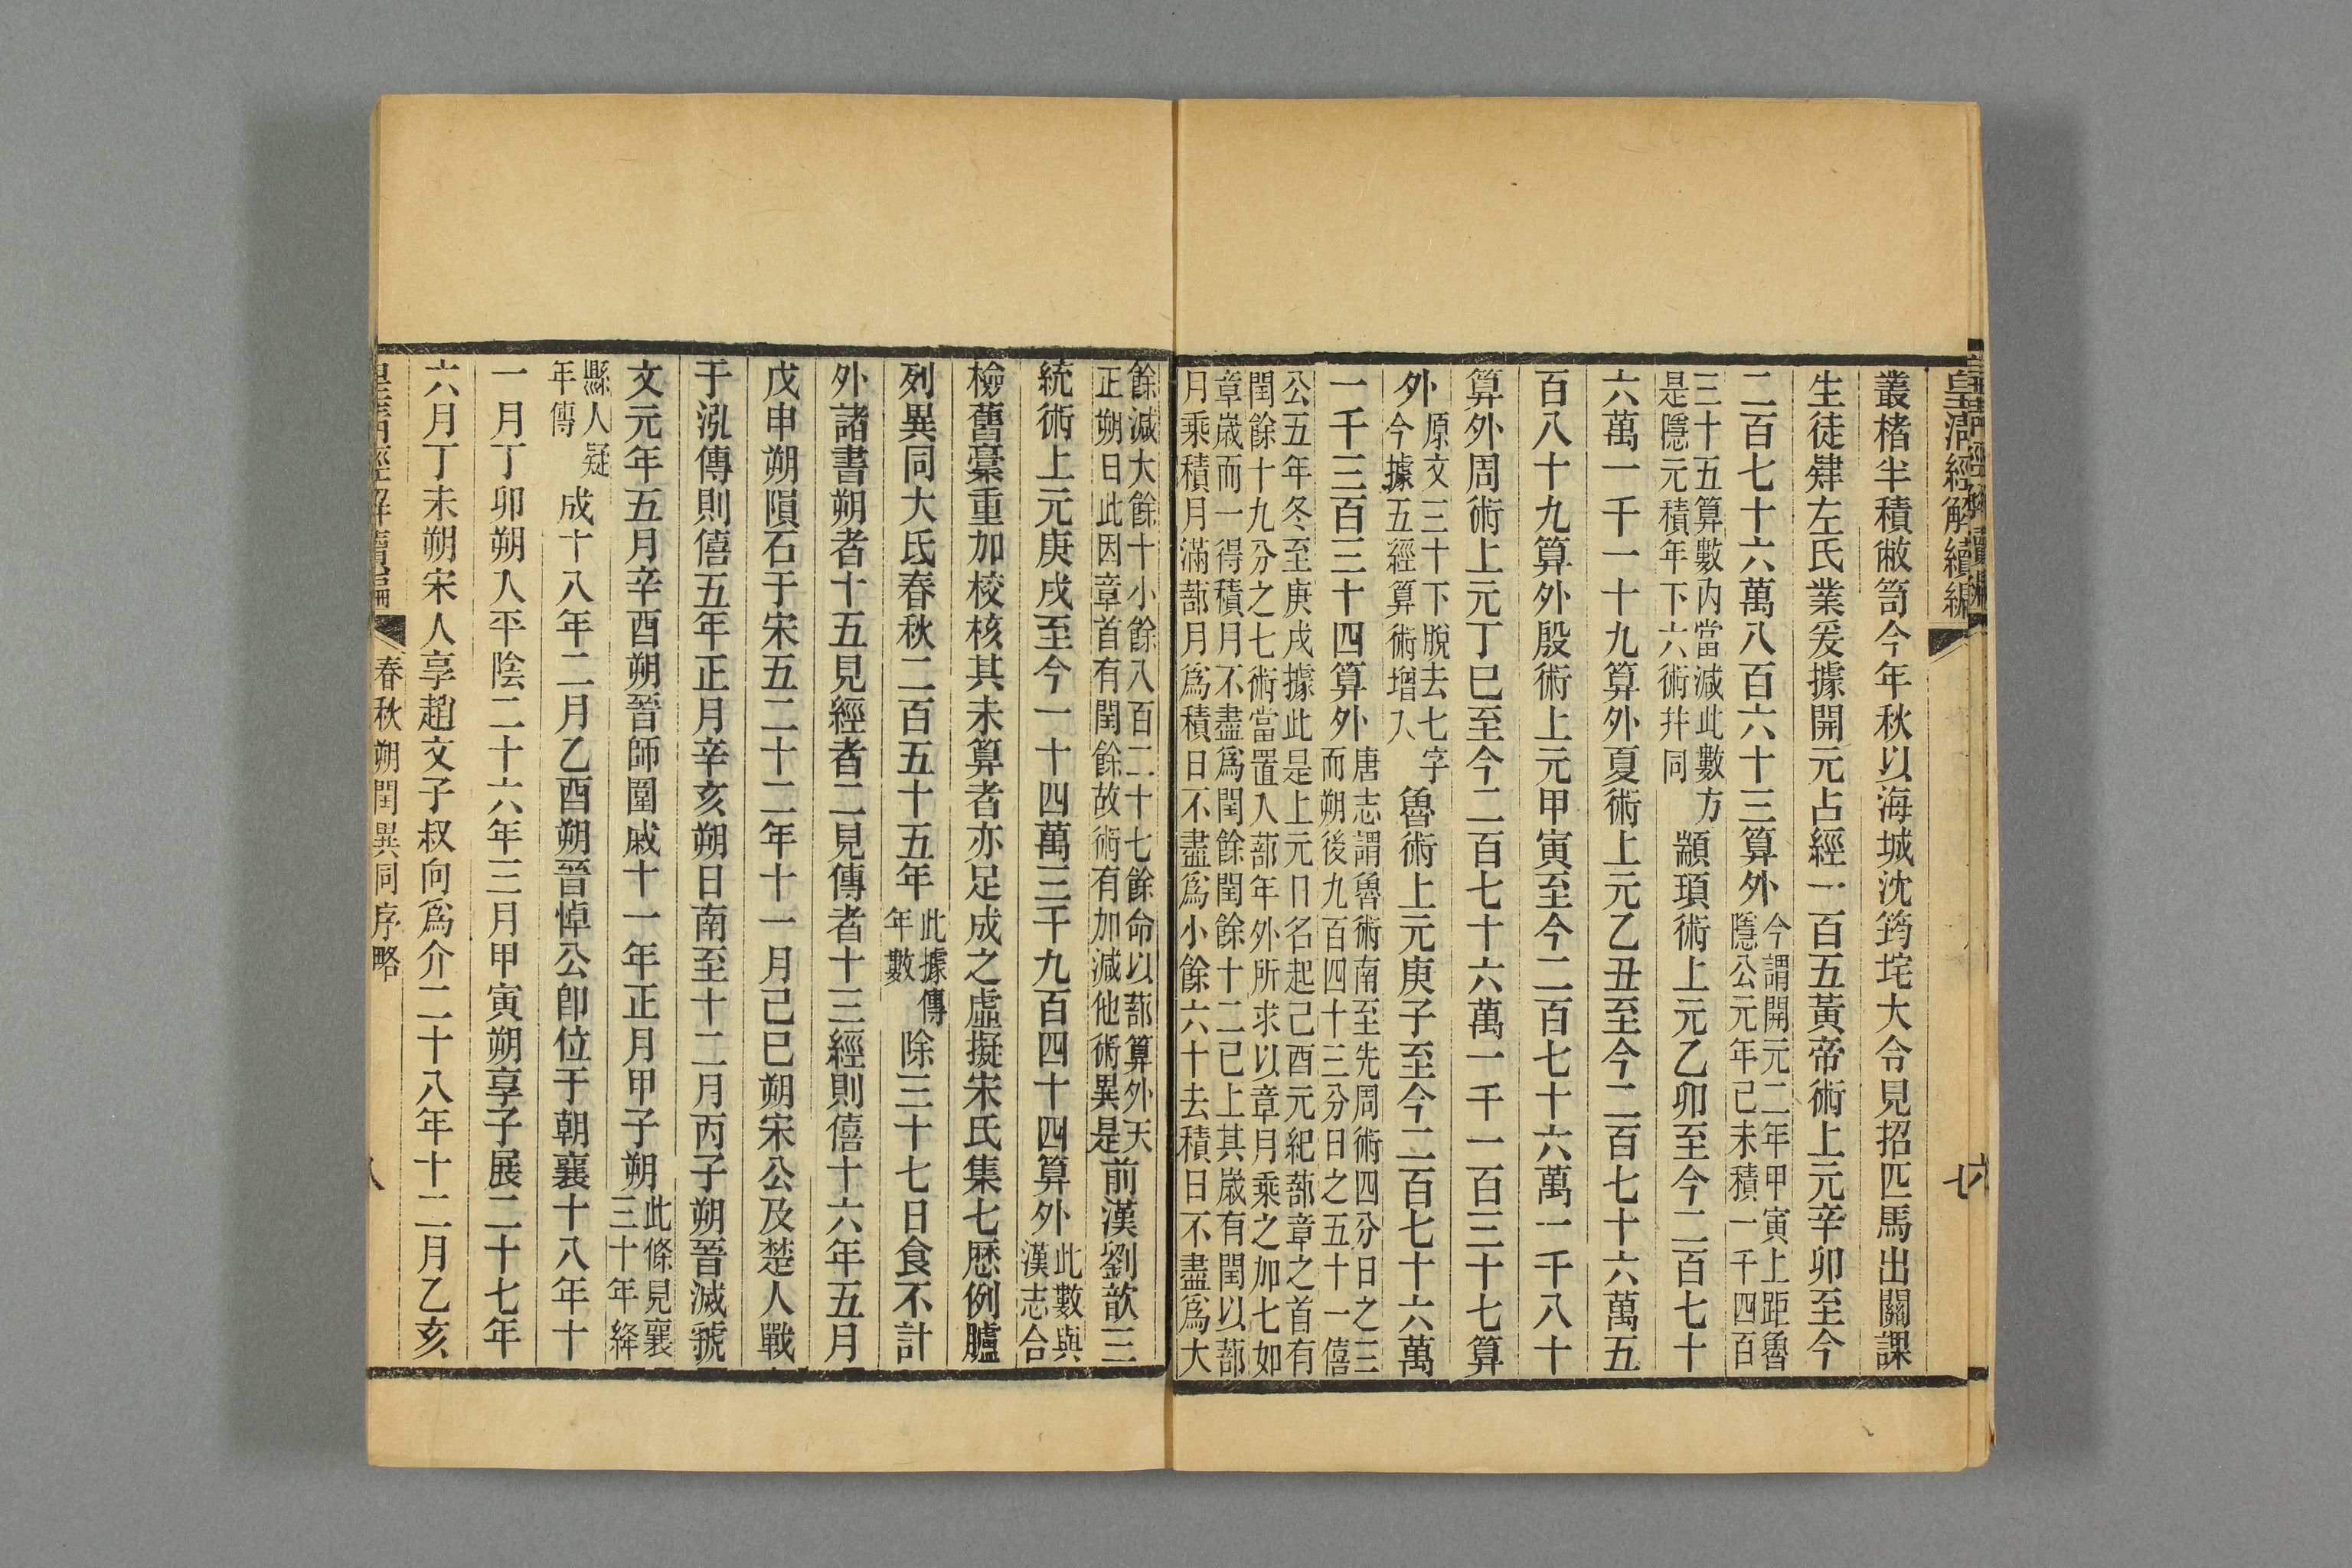 皇清經解續編
七
叢楮半積敝笥今年秋以海城沈筠垞大令見招匹馬出關課
生徒肄左氏業爰據開元占經一百五黃帝術上元辛卯至今
二百七十六萬八百六十三算外今謂開元二年甲寅上距魯
隱公元年己未積一千四百
三十五算數內當減此數方
是隱元積年下六術幷同顓頊術上元乙卯至今二百七十
六萬一千一十九算外夏術上元乙丑至今二百七十六萬五
百八十九算外殷術上元甲寅至今二百七十六萬一千八十
算外周術上元丁巳至今二百七十六萬一千一百三十七算
外原文三十下脫去七字
今據五經算術增入魯術上元庚子至今二百七十六萬
一千三百三十四算外唐志謂魯術南至先周術四分日之三
而朔後九百四十三分日之五十一僖
公五年冬至庚戌據此是上元日名起己酉元紀蔀章之首有
閏餘十九分之七術當置入蔀年外所求以章月乘之加七如
章歲而一得積月不盡爲閏餘閏餘十二已上其歲有閏以蔀
月乘積月滿蔀月爲積日不盡爲小餘六十去積日不盡爲大
餘減大餘十小餘八百二十七餘命以蔀算外天
正朔日此因章首有閏餘故術有加減他術異是前漢劉歆三
統術上元庚戌至今一十四萬三千九百四十四算外此數與
漢志合
檢舊稾重加校核其未算者亦足成之虛擬宋氏集七厯例臚
列異同大氐春秋二百五十五年此據傳
年數除三十七日食不計
外諸書朔者十五見經者二見傳者十三經則僖十六年五月
戊申朔隕石于宋五二十二年十一月己巳朔宋公及楚人戰
于泓傳則僖五年正月辛亥朔日南至十二月丙子朔晉滅虢
文元年五月辛酉朔晉師圍戚十一年正月甲子朔此條見襄
三十年絳
縣人疑
年傳成十八年二月乙酉朔晉悼公卽位于朝襄十八年十
一月丁卯朔入平陰二十六年三月甲寅朔享子展二十七年
六月丁未朔宋人享趙文子叔向爲介二十八年十二月乙亥
皇清經解續編
春秋朔閏異同序略
八